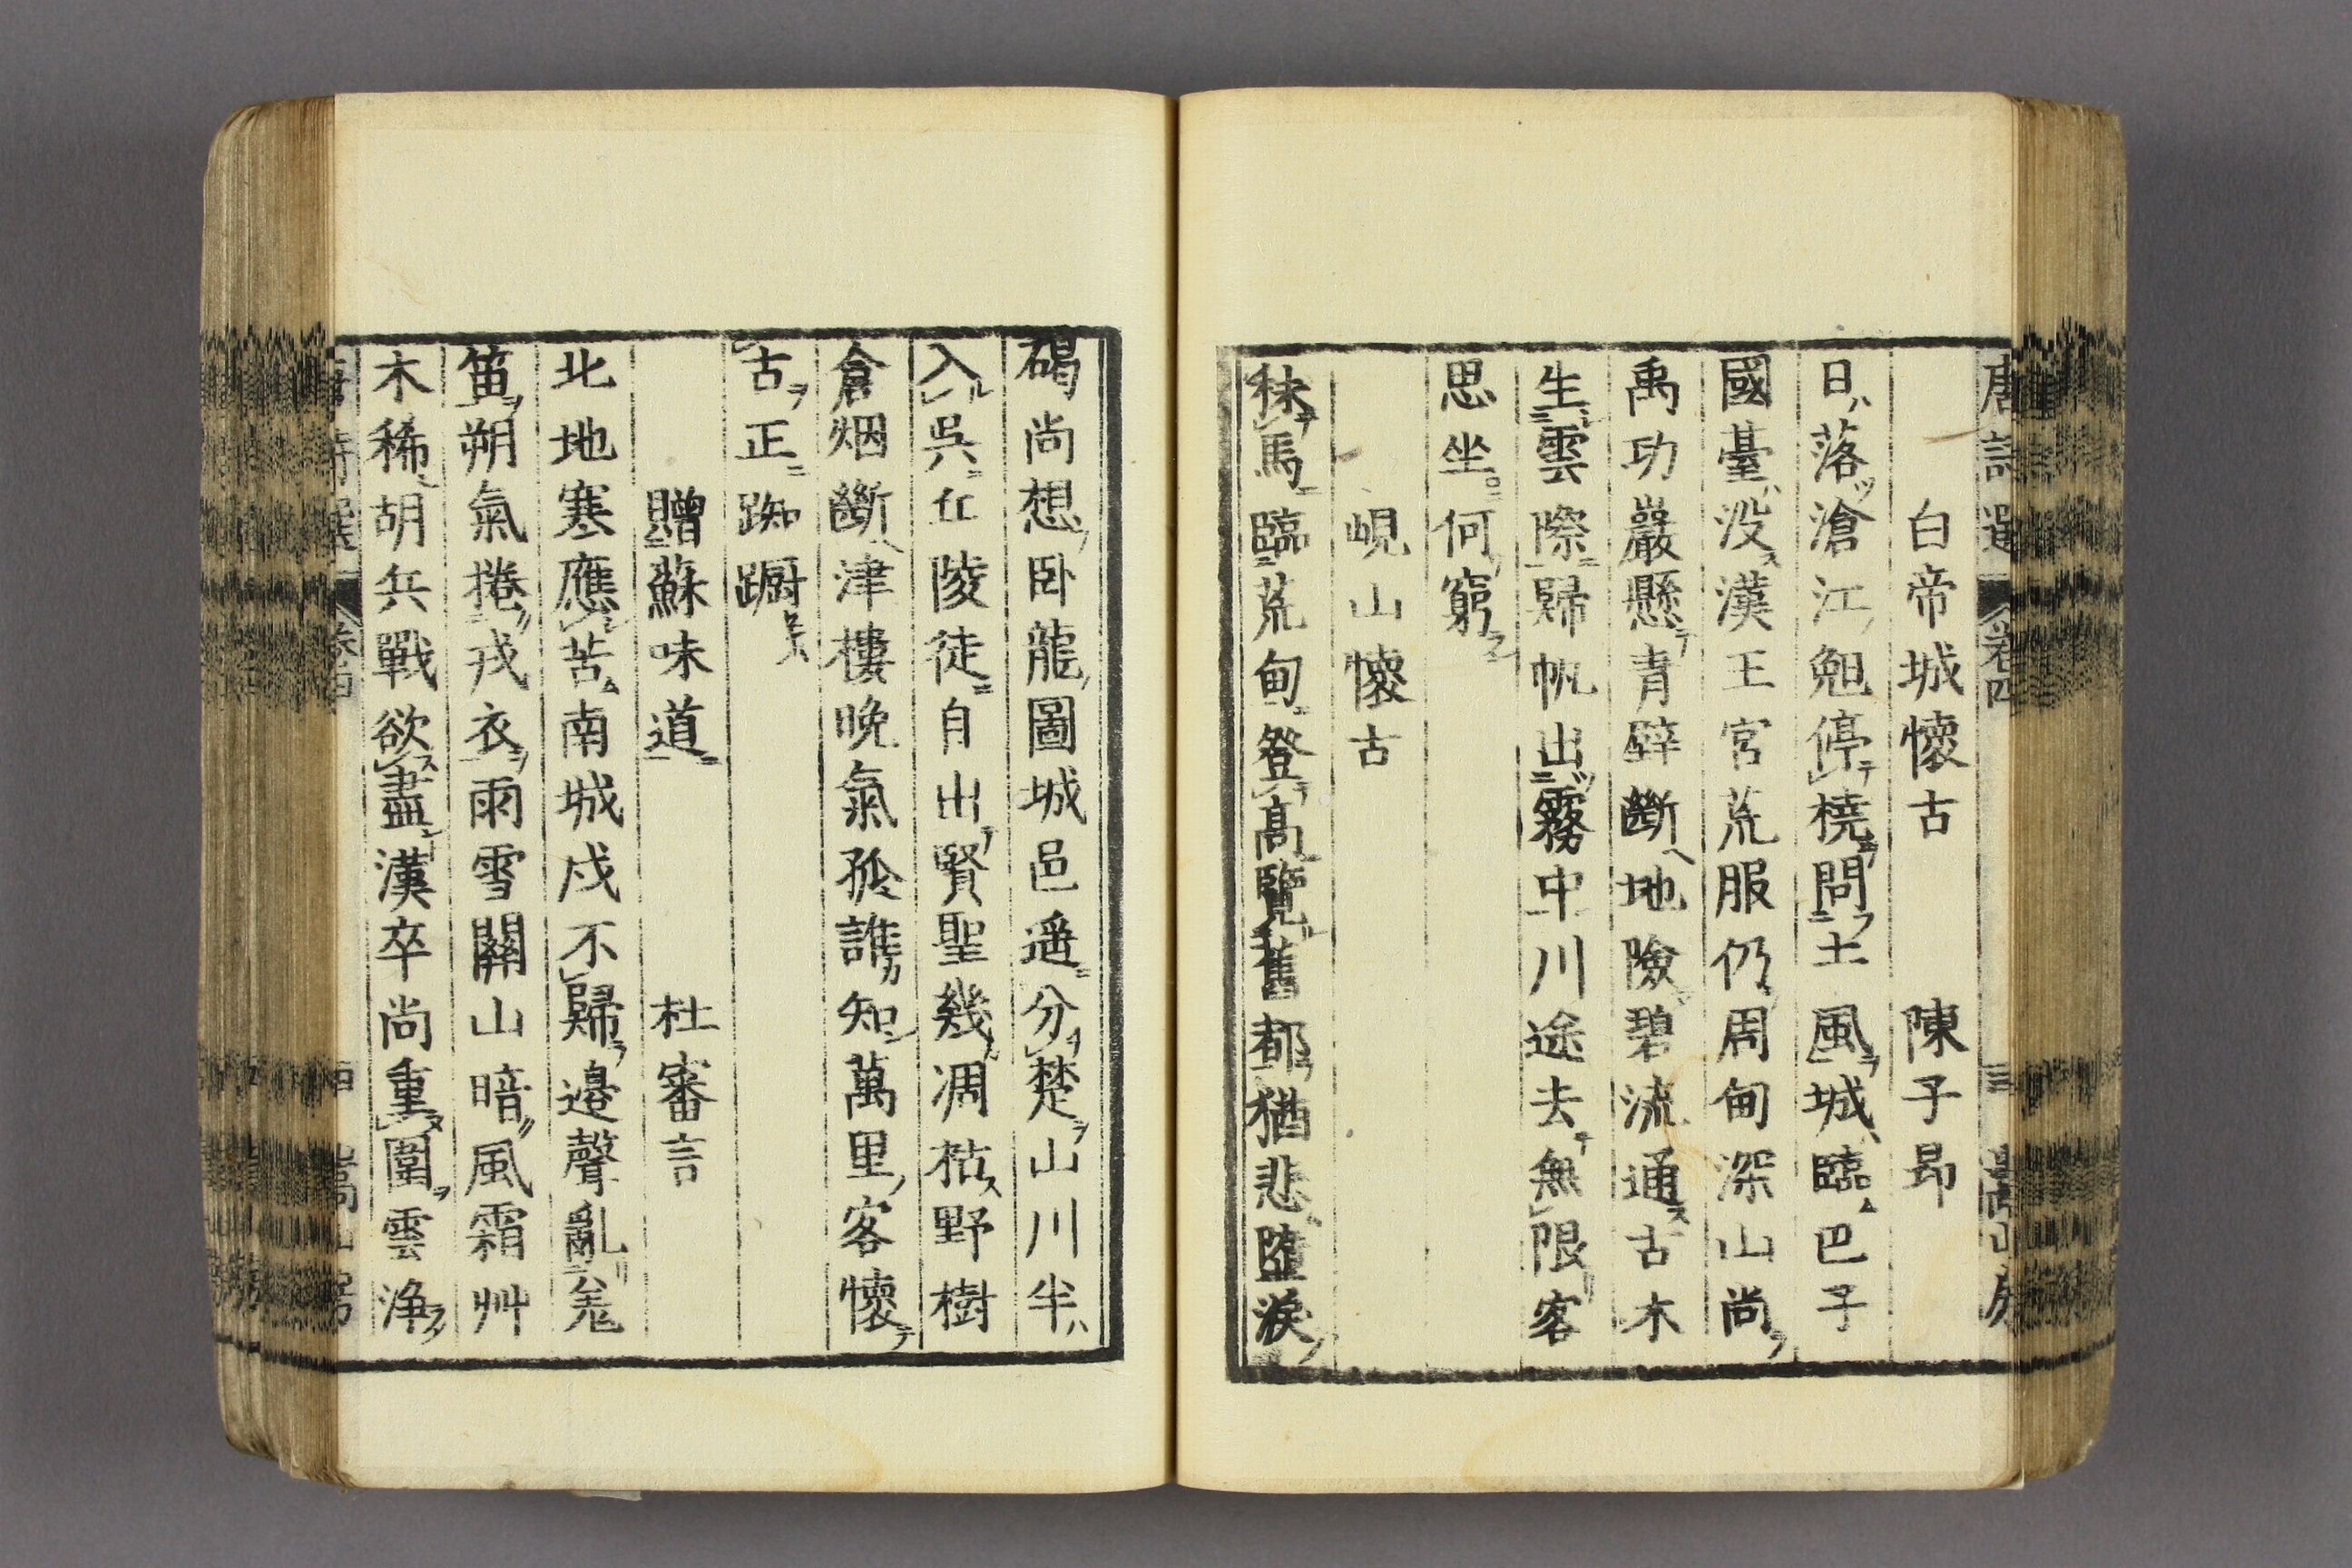 唐詩選 卷四 三 嵩山房
白帝城懷古 陳子昻
日落滄江䑓停橈問土風城臨巴子
國臺没漢王宮荒服仍周甸深山尚
禹功巖懸青壁斷地險碧流通古木
生雲際歸帆出霧中川途去無限客
思坐何窮
峴山懷古
秣馬臨荒甸登高覽舊都猶悲墮淚
碣尚想卧龍圖城邑遥分楚山川半
入吳丘陵徒自出賢聖幾凋枯野樹
倉烟斷津樓晚氣孤誰知萬里客懷
古正踟蹰
贈蘇味道 杜審言
北地寒應苦南城戍不歸邉聲亂羌
笛朔氣捲戎衣雨雪關山暗風霜艸
木稀胡兵戰欲盡漢卒尚重圍雲淨